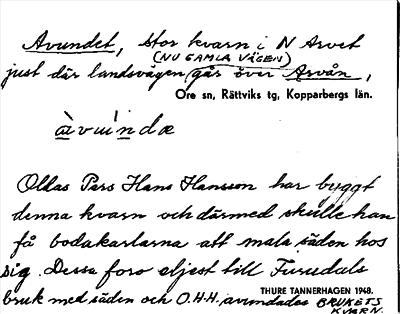 Avundet, stor kvarn i N Arvet
(NU GAMLA VÄGEN)
just där landsvägen går över Arvån,
Ore sn, Rättviks tg, Kopparbergs län.
àvuıńdæ
Olldas Pers Hans Hansson har byggt
denna kvarn och därmed skulle han
få bodakarlarna att mala säden hos
sig. Dessa foro eljest till Furudals
THURE TANNERHAGEN 1948.
bruk med säden och O.H.H. avundades BRUKETS
KVARN.